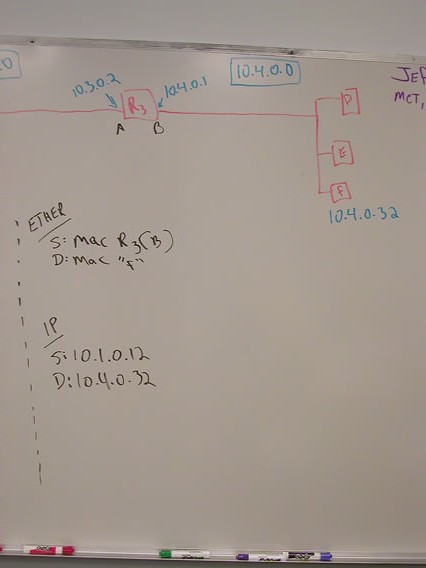 .0
10.4.0.0
JEF
MCT,
10.3.0.2
10.4.0.1
R3
A
B
D
E
F
10.4.0.32
ETHER
S: MAC R3(B)
D: MAC "F"
IP
S: 10.1.0.12
D: 10.4.0.32